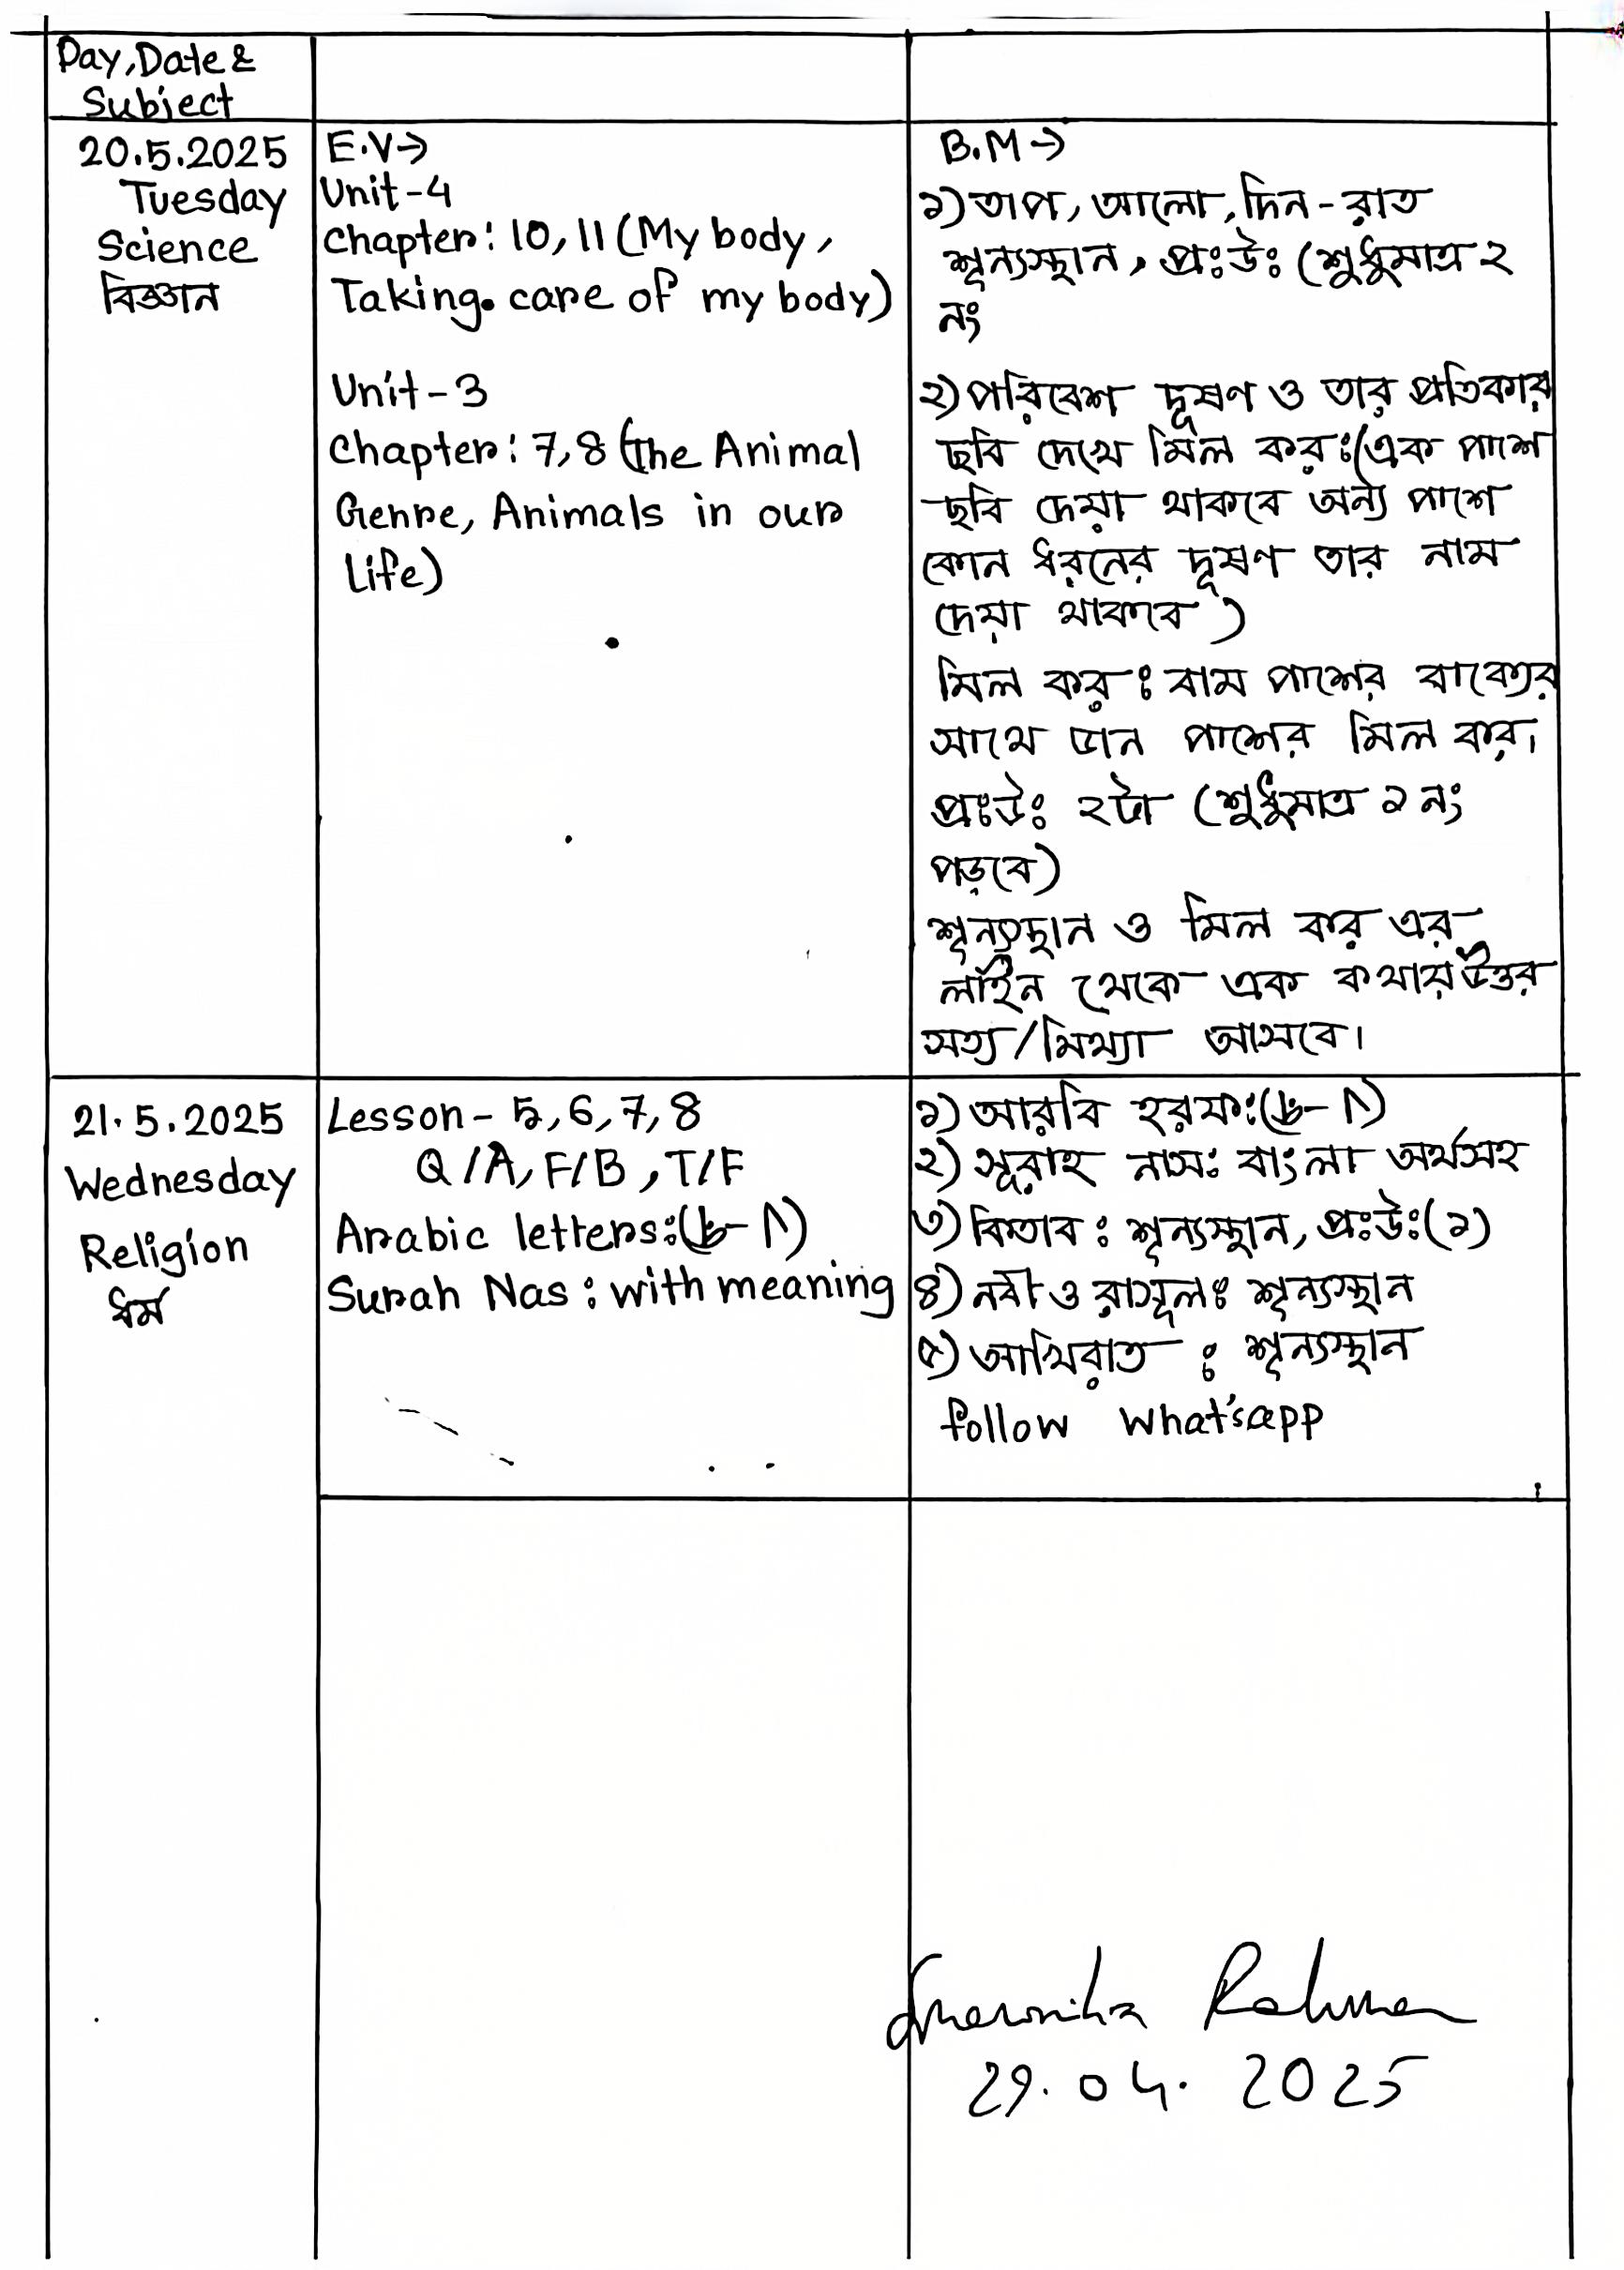 Day, Date &
Subject
20.5.2025
Tuesday
Science
বিজ্ঞান
E.V→
Unit-4
Chapter: 10, 11 (My body,
Taking care of my body)
Unit-3
Chapter: 7, 8 (The Animal
Genre, Animals in our
Life)
B.M→
১) তাপ, আলো, দিন-রাত
শূন্যস্থান, প্রঃউঃ (শুধুমাত্র ২
নং
২) পরিবেশ দূষণ ও তার প্রতিকার
ছবি দেখে মিল করঃ (এক পাশে
ছবি দেয়া থাকবে অন্য পাশে
কোন ধরনের দূষণ তার নাম
দেয়া থাকবে)
মিল করঃ বাম পাশের বাক্যের
সাথে ডান পাশের মিল কর।
প্রঃউঃ ২টা (শুধুমাত্র ১ নং
পড়বে)
শূন্যস্থান ও মিল কর এর
লাইন থেকে এক কথায় উত্তর
সত্য/মিথ্যা আসবে।
21.5.2025
Wednesday
Religion
ধর্ম
Lesson- 5, 6, 7, 8
Q/A, F/B, T/F
Arabic letters:
Surah Nas: with meaning
১) আরবি হরফ:
২) সূরাহ নাসঃ বাংলা অর্থসহ
৩) কিতাব: শূন্যস্থান, প্রঃউঃ (১)
৪) নবী ও রাসূলঃ শূন্যস্থান
৫) আখিরাত ঃ শূন্যস্থান
follow what'sapp
Rahman
29.04.2025